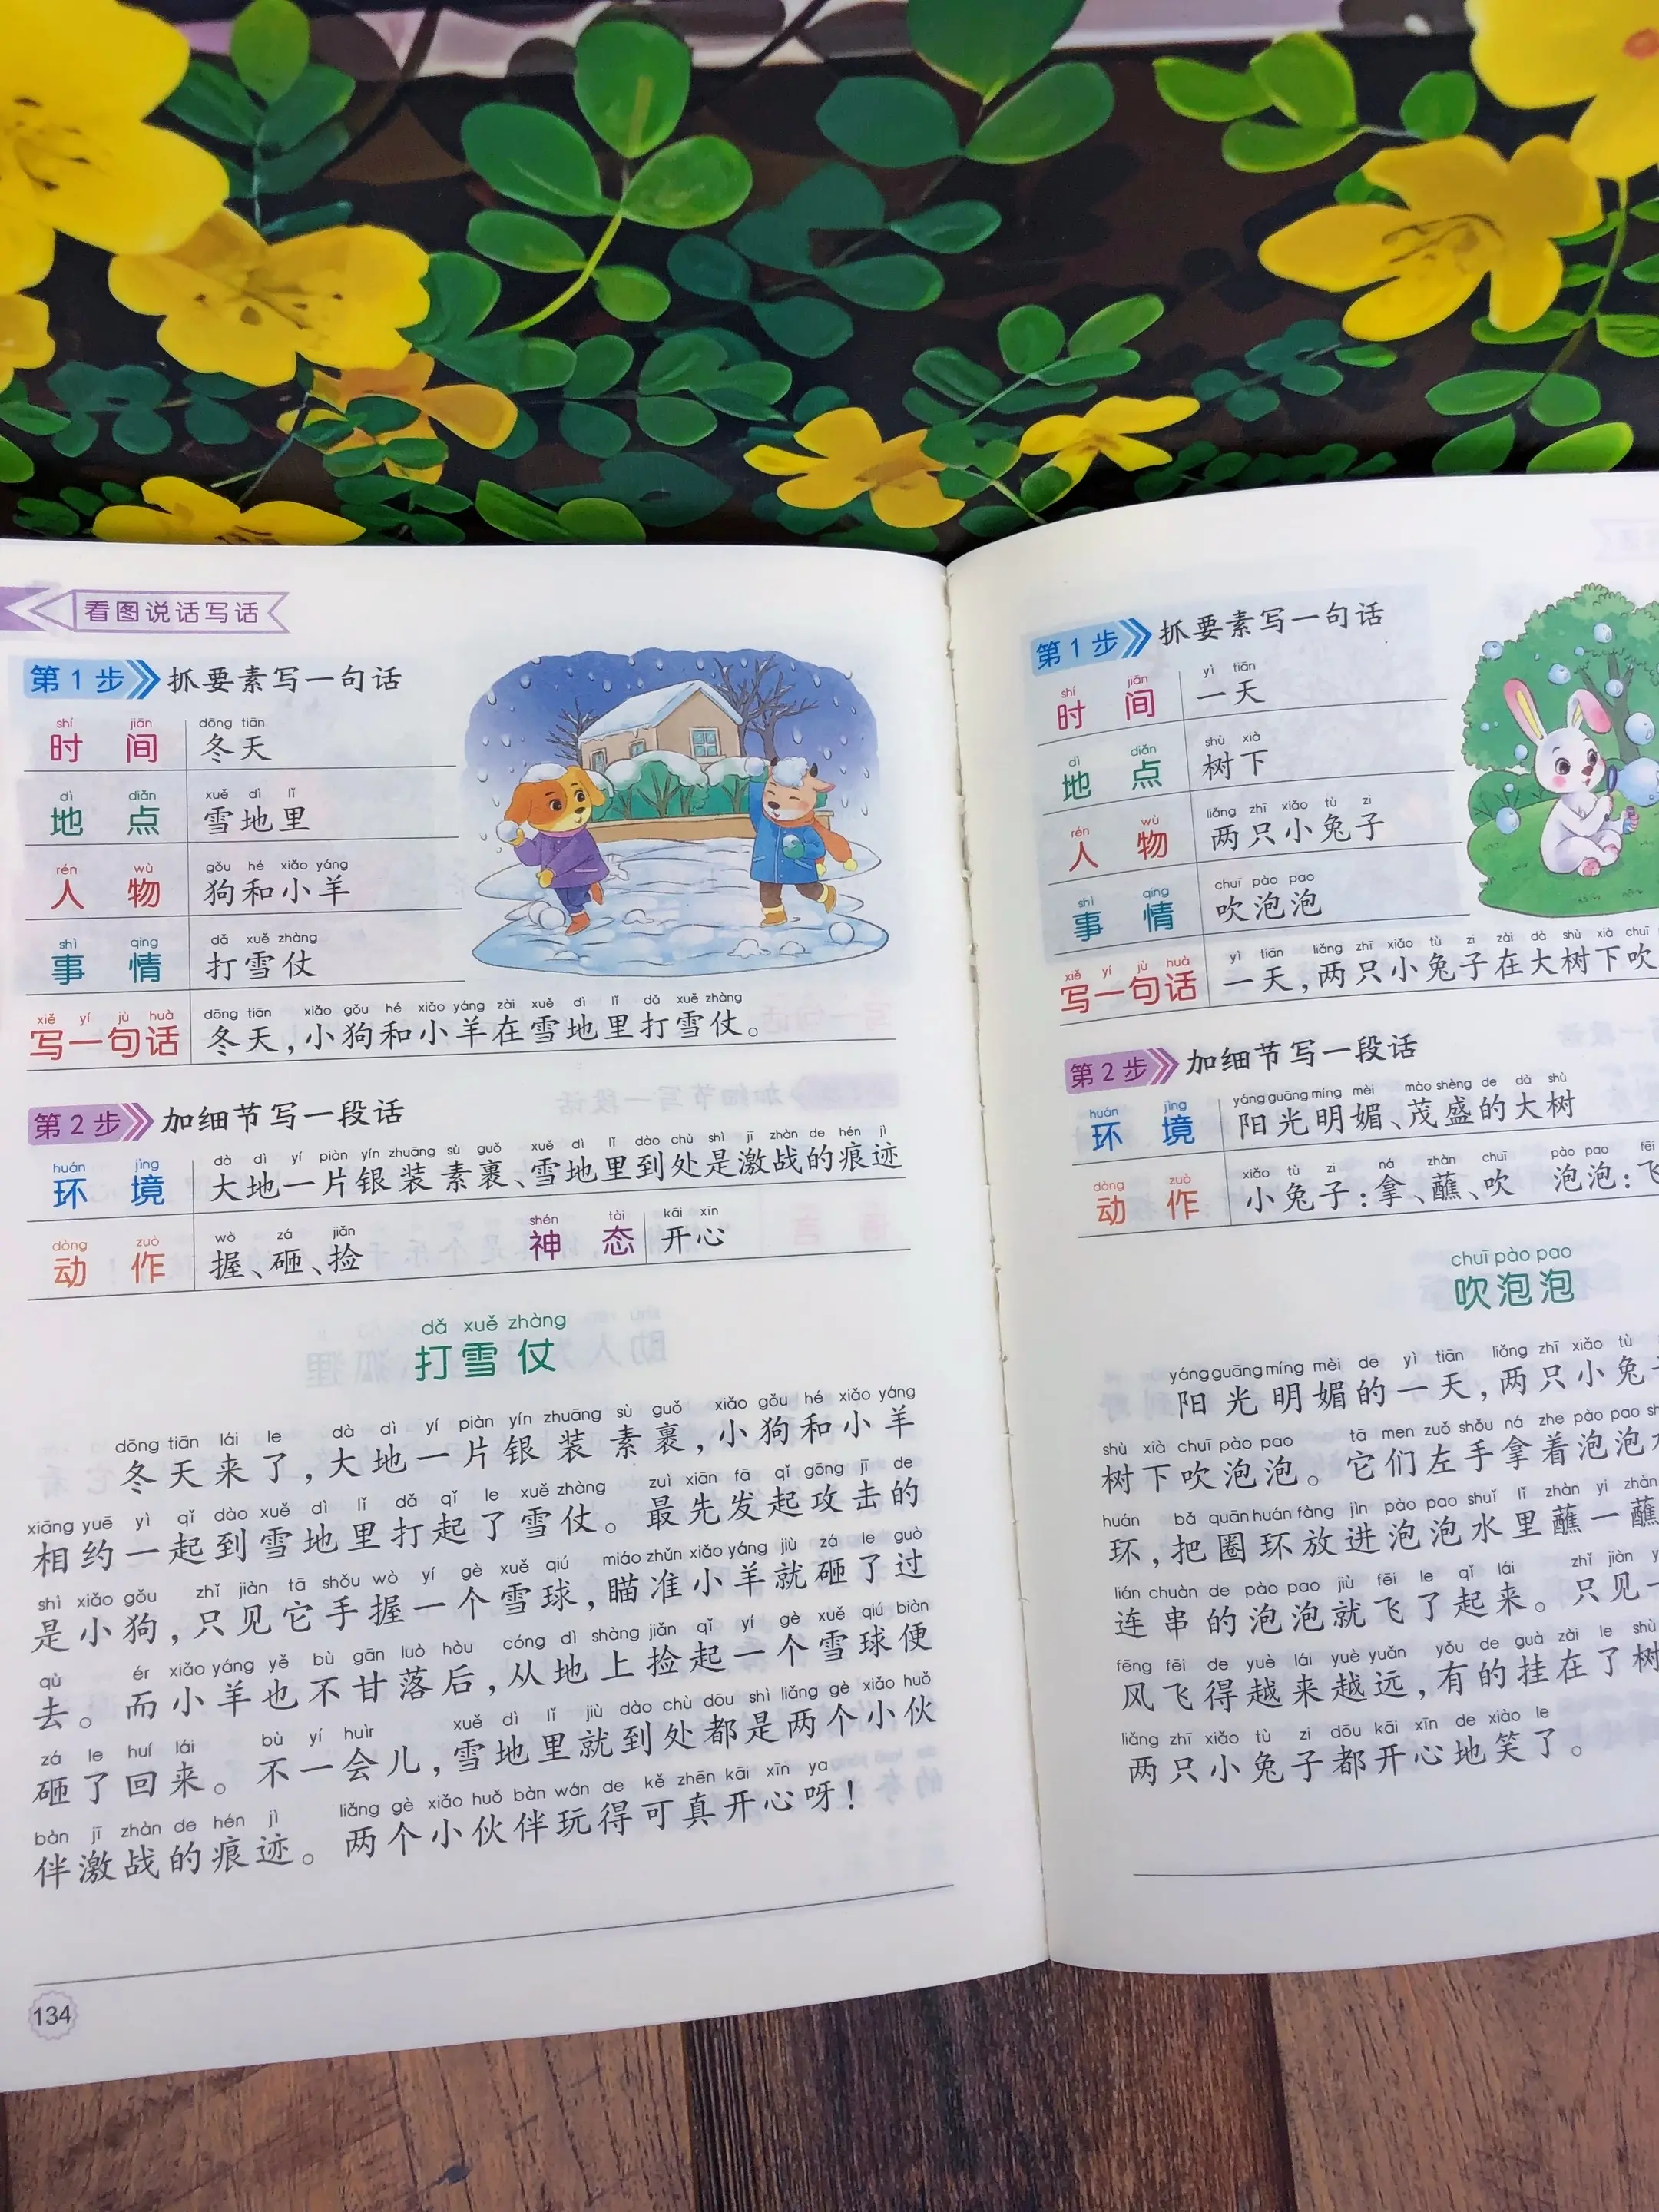 看图说话写话
第1步 抓要素写一句话
shí jiān dōng tiān
时间 冬天
dì diǎn xuě dì lǐ
地点 雪地里
rén wù gǒu hé xiǎo yáng
人物 狗和小羊
shì qing dǎ xuě zhàng
事情 打雪仗
xiě yí jù huà dōng tiān xiǎo gǒu hé xiǎo yáng zài xuě dì lǐ dǎ xuě zhàng
写一句话 冬天,小狗和小羊在雪地里打雪仗。
第2步 加细节写一段话
huán jìng dà dì yí piàn yín zhuāng sù guǒ xuě dì lǐ dào chù shì jī zhàn de hén jì
环境 大地一片银装素裹、雪地里到处是激战的痕迹
dòng zuò wò zá jiǎn shén tài kāi xīn
动作 握、砸、捡 神态 开心
dǎ xuě zhàng
打雪仗
dōng tiān lái le dà dì yí piàn yín zhuāng sù guǒ xiǎo gǒu hé xiǎo yáng
冬天来了,大地一片银装素裹,小狗和小羊
xiāng yuē yì qǐ dào xuě dì lǐ dǎ qǐ le xuě zhàng zuì xiān fā qǐ gōng jī de
相约一起到雪地里打起了雪仗。最先发起攻击的
shì xiǎo gǒu zhǐ jiàn tā shǒu wò yí gè xuě qiú miáo zhǔn xiǎo yáng jiù zá le guò
是小狗,只见它手握一个雪球,瞄准小羊就砸了过
qù ér xiǎo yáng yě bù gān luò hòu cóng dì shàng jiǎn qǐ yí gè xuě qiú biàn
去。而小羊也不甘落后,从地上捡起一个雪球便
zá le huí lái bù yí huìr xuě dì lǐ jiù dào chù dōu shì liǎng gè xiǎo huǒ
砸了回来。不一会儿,雪地里就到处都是两个小伙
bàn jī zhàn de hén jì liǎng gè xiǎo huǒ bàn wán de kě zhēn kāi xīn ya
伴激战的痕迹。两个小伙伴玩得可真开心呀!
134
第1步 抓要素写一句话
shí jiān yì tiān
时间 一天
dì diǎn shù xià
地点 树下
rén wù liǎng zhī xiǎo tù zi
人物 两只小兔子
shì qing chuī pào pao
事情 吹泡泡
xiě yí jù huà yì tiān liǎng zhī xiǎo tù zi zài dà shù xià chuī
写一句话 一天,两只小兔子在大树下吹
第2步 加细节写一段话
huán jìng yáng guāng míng mèi mào shèng de dà shù
环境 阳光明媚、茂盛的大树
dòng zuò xiǎo tù zi ná zhàn chuī pào pao fēi
动作 小兔子:拿、蘸、吹 泡泡:飞
chuī pào pao
吹泡泡
yáng guāng míng mèi de yì tiān liǎng zhī xiǎo tù
阳光明媚的一天,两只小兔
shù xià chuī pào pao tā men zuǒ shǒu ná zhe pào pao
树下吹泡泡。它们左手拿着泡泡
huán bǎ quān huán fàng jìn pào pao shuǐ lǐ zhàn yi zhàn
环,把圈环放进泡泡水里蘸一蘸
lián chuàn de pào pao jiù fēi le qǐ lái zhǐ jiàn
连串的泡泡就飞了起来。只见一
fēng fēi de yuè lái yuè yuǎn yǒu de guà zài le shù
风飞得越来越远,有的挂在了树
liǎng zhī xiǎo tù zi dōu kāi xīn de xiào le
两只小兔子都开心地笑了。